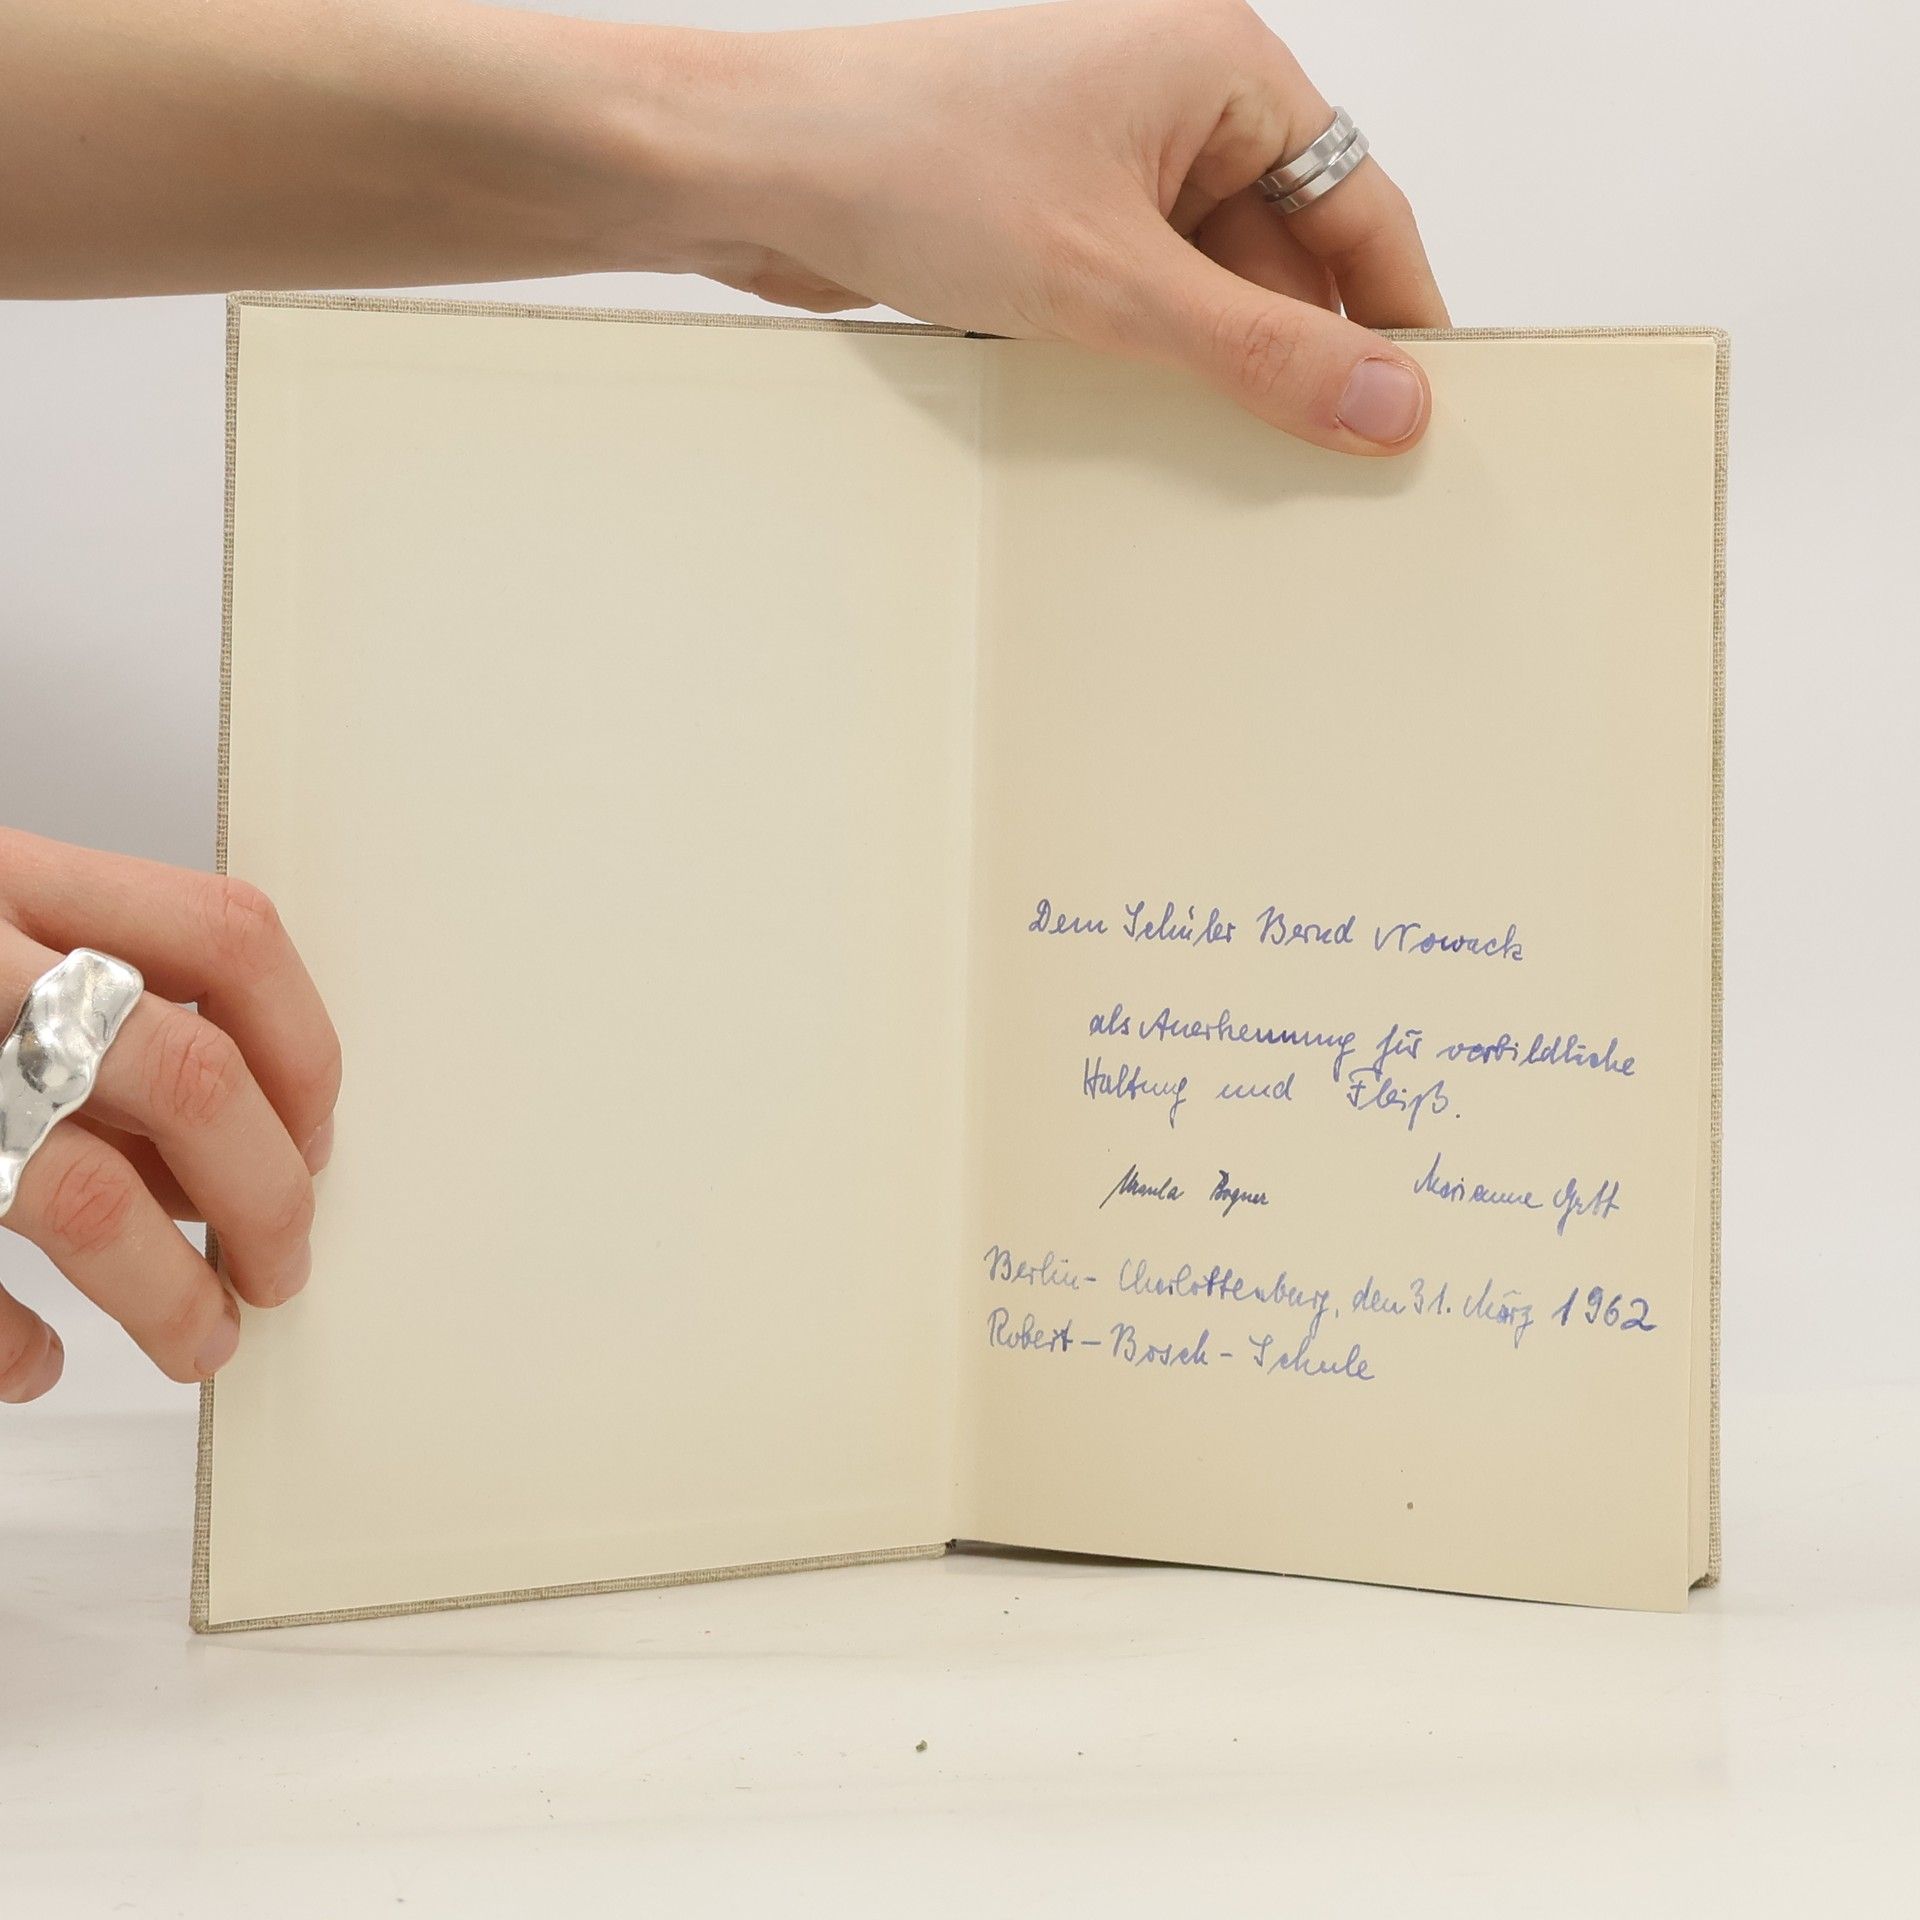 Dem Schüler Bernd Nowack
als Anerkennung für vorbildliche
Haltung und Fleiß.
Ursula Bogner Marianne
Berlin-Charlottenburg, den 31. März 1962
Robert-Bosch-Schule